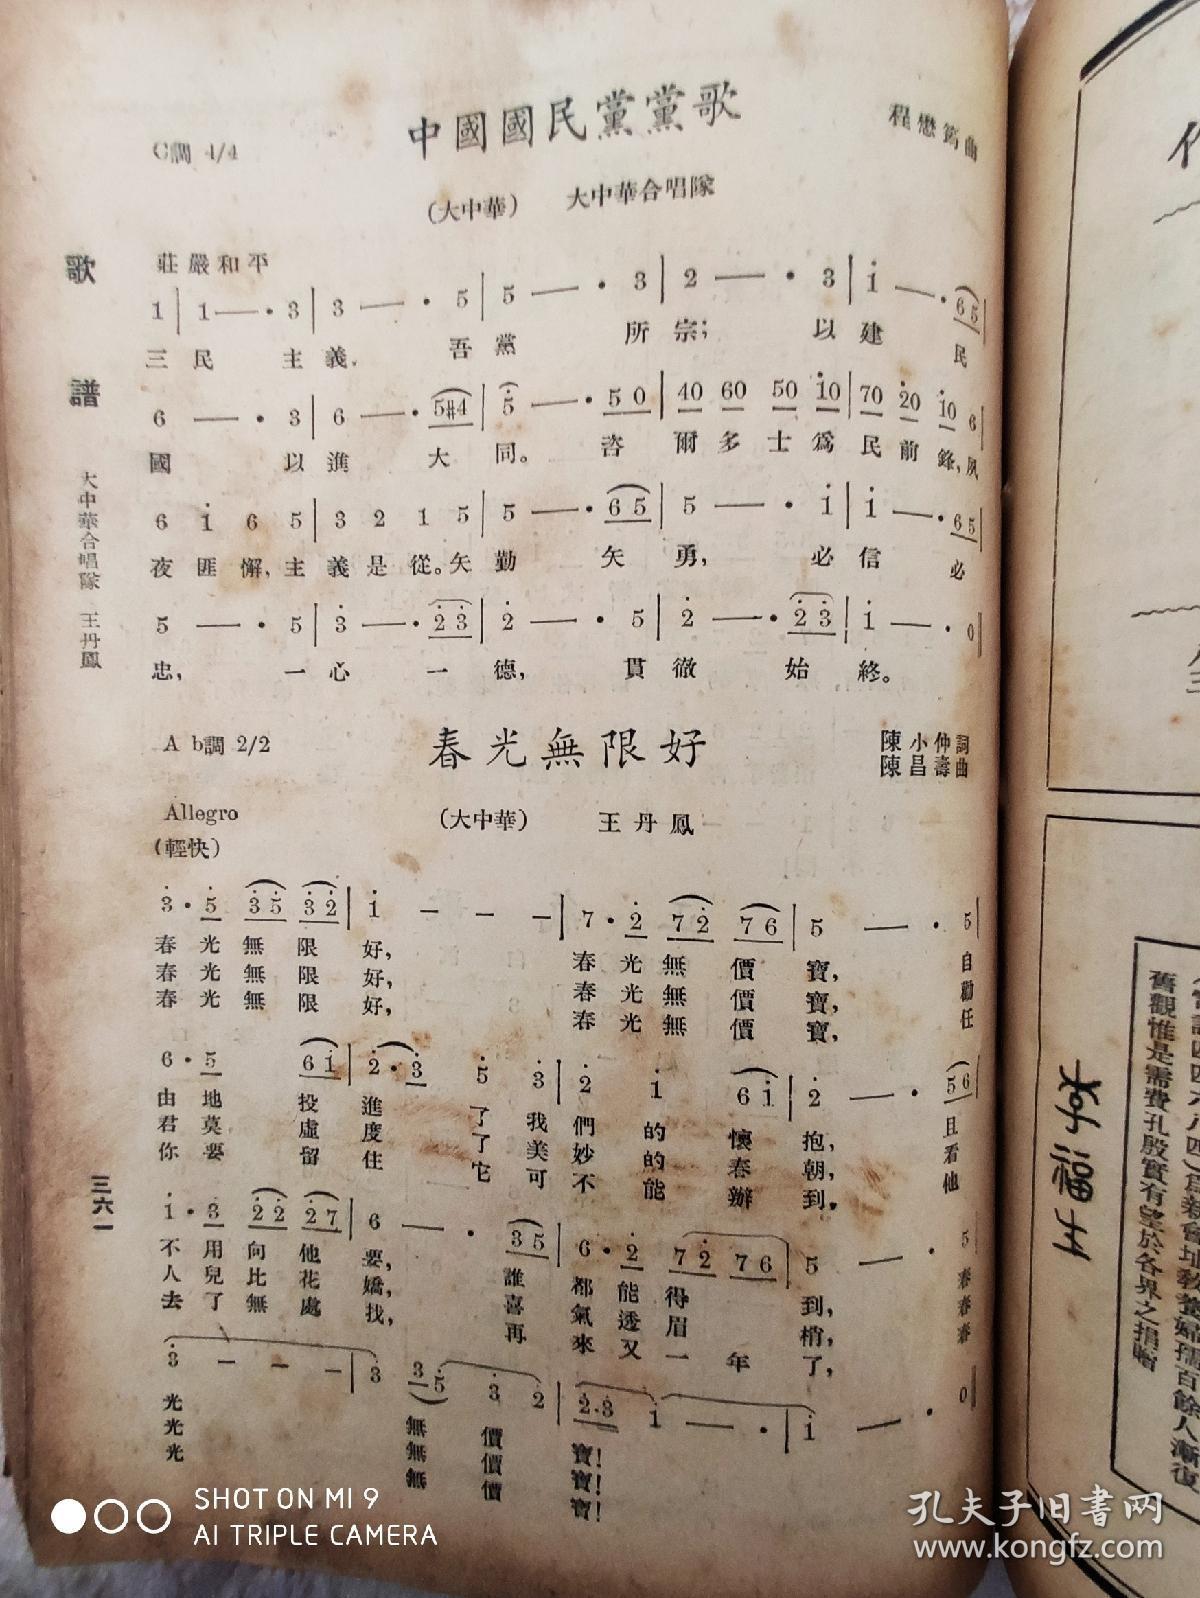 中國國民黨黨歌
程懋筠曲
C調 4/4
(大中華) 大中華合唱隊
莊嚴和平
1 | 1 — · 3 | 3 — · 5 | 5 — · 3 | 2 — · 3 | i — · 6 5 |
三 民 主 義, 吾 黨 所 宗; 以 建 民
6 — · 3 | 6 — · 5#4 | 5 — · 5 0 | 40 60 50 i0 | 70 20 i0 6 |
國 以 進 大 同。 咨 爾 多 士 爲 民 前 鋒, 夙
6 i 6 5 | 3 2 1 5 | 5 — · 6 5 | 5 — · i | i — · 6 5 |
夜 匪 懈, 主 義 是 從。 矢 勤 矢 勇, 必 信 必
5 — · 5 | 3 — · 2 3 | 2 — · 5 | 2 — · 2 3 | i — · 0 ||
忠, 一 心 一 德, 貫 徹 始 終。
春光無限好
陳小仲詞
陳昌壽曲
A b調 2/2
Allegro
(輕快)
(大中華) 王丹鳳
3 · 5 3 5 3 2 | i — — — | 7 · 2 7 2 7 6 | 5 — · 5 |
春 光 無 限 好, 春 光 無 價 寶, 自
春 光 無 限 好, 春 光 無 價 寶, 勸
春 光 無 限 好, 春 光 無 價 寶, 任
6 · 5 6 i | 2 · 3 5 3 | 2 i 6 i | 2 — · 5 6 |
由 地 投 進 了 我 們 的 懷 抱, 且
君 莫 虛 度 了 美 妙 的 春 朝, 看
你 要 留 住 它 可 不 能 辦 到, 他
i · 3 2 2 2 7 | 6 — · 3 5 | 6 · 2 7 2 7 6 | 5 — · 5 |
不 用 向 他 要, 誰 都 能 得 到, 春
人 兒 比 花 嬌, 喜 氣 透 眉 梢, 春
去 了 無 處 找, 再 來 又 一 年 了, 春
3 — — — | 3 3 5 3 2 | 2 · 3 i — · | i — · 0 ||
光 無 價 寶!
光 無 價 寶!
光 無 價 寶!
歌譜
大中華合唱隊 王丹鳳
三六一
李福生
舊觀惟是需費孔殷實有望於各界之捐贈
SHOT ON MI 9
AI TRIPLE CAMERA
孔夫子旧书网
www.kongfz.com